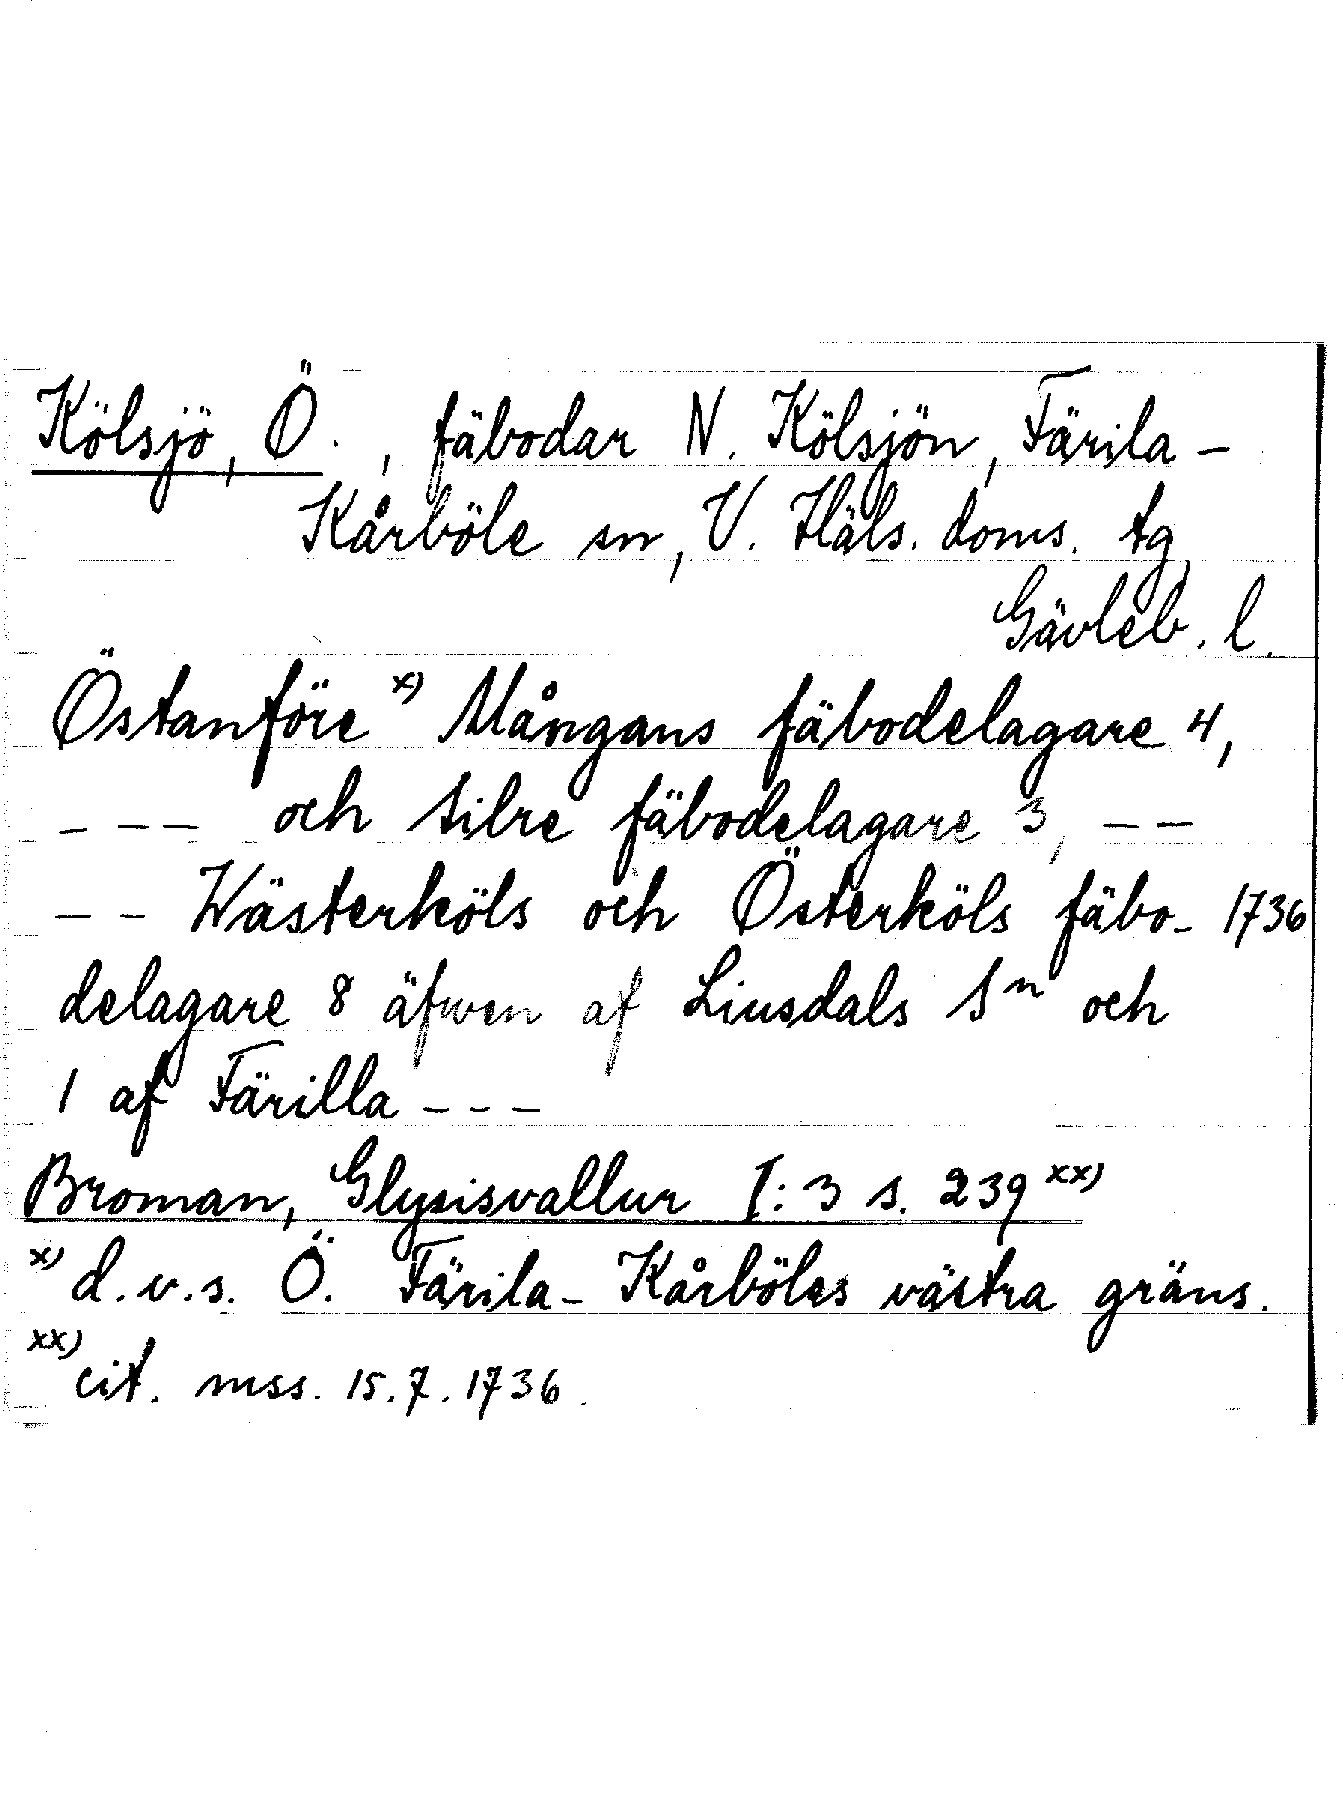 Kölsjö, Ö. , fäbodar N. Kölsjön, Färila-
Kårböle sn, V. Häls. doms. tg,
Gävleb. l.
Östanföre x) Mångans fäbodelagare 4,
_ _ _ och Silre fäbodelagare 3, _ _
_ _ Wästerköls och Österköls fäbo- 1736
delagare 8 äfwen af Liusdals Sn och
1 af Färilla _ _ _
Broman, Glysisvallur I: 3 s. 239 xx)
x) d.v.s. Ö. Färila-Kårböles västra gräns.
xx) cit. mss. 15.7.1736.